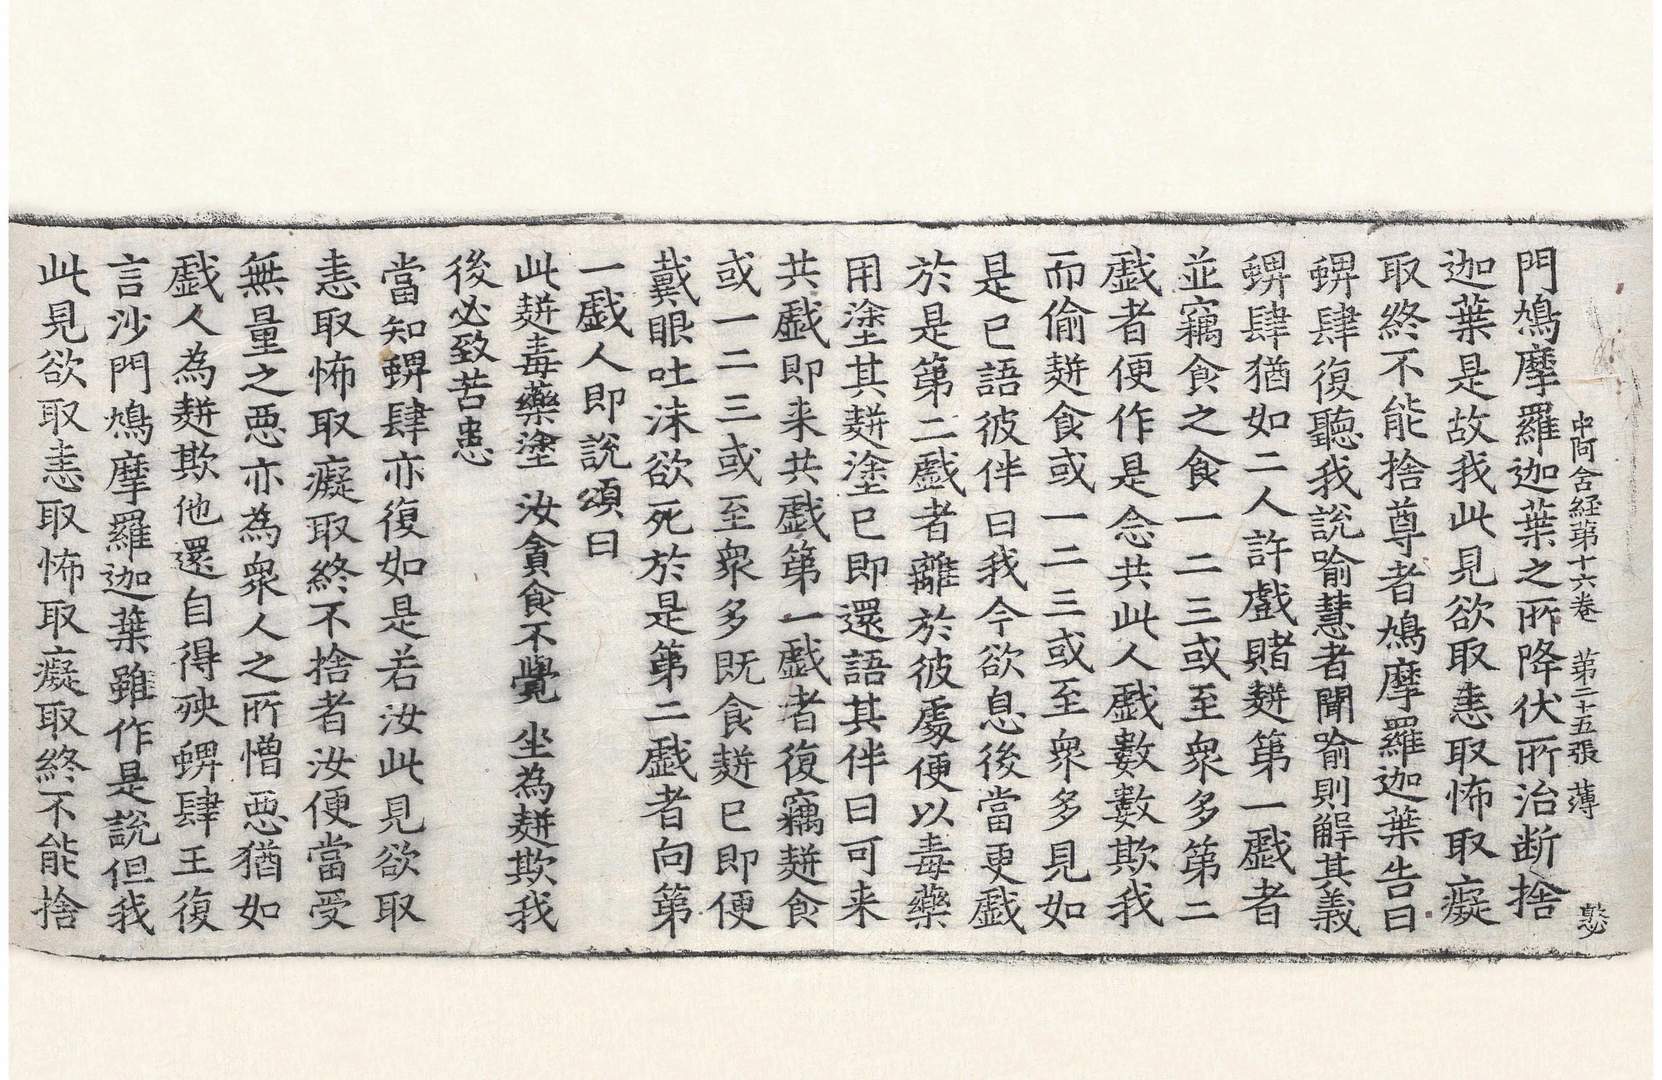 中阿含経第十六卷　第二十五張　薄
門鳩摩羅迦葉之所降伏所治断捨
迦葉是故我此見欲取恚取怖取癡
取終不能捨尊者鳩摩羅迦葉告曰
蜱肆復聽我說喻慧者聞喻則解其義
蜱肆猶如二人許戲賭䴵第一戲者
並竊食之食一二三或至衆多第二
戲者便作是念共此人戲數數欺我
而偷䴵食或一二三或至衆多見如
是已語彼伴曰我今欲息後當更戲
於是第二戲者離於彼處便以毒藥
用塗其䴵塗已即還語其伴曰可来
共戲即来共戲第一戲者復竊䴵食
或一二三或至衆多既食䴵已即便
戴眼吐沫欲死於是第二戲者向第
一戲人即說頌曰
此䴵毒藥塗　汝貪食不覺　坐為䴵欺我
後必致苦患
當知蜱肆亦復如是若汝此見欲取
恚取怖取癡取終不捨者汝便當受
無量之惡亦為衆人之所憎惡猶如
戲人為䴵欺他還自得殃蜱肆王復
言沙門鳩摩羅迦葉雖作是說但我
此見欲取恚取怖取癡取終不能捨